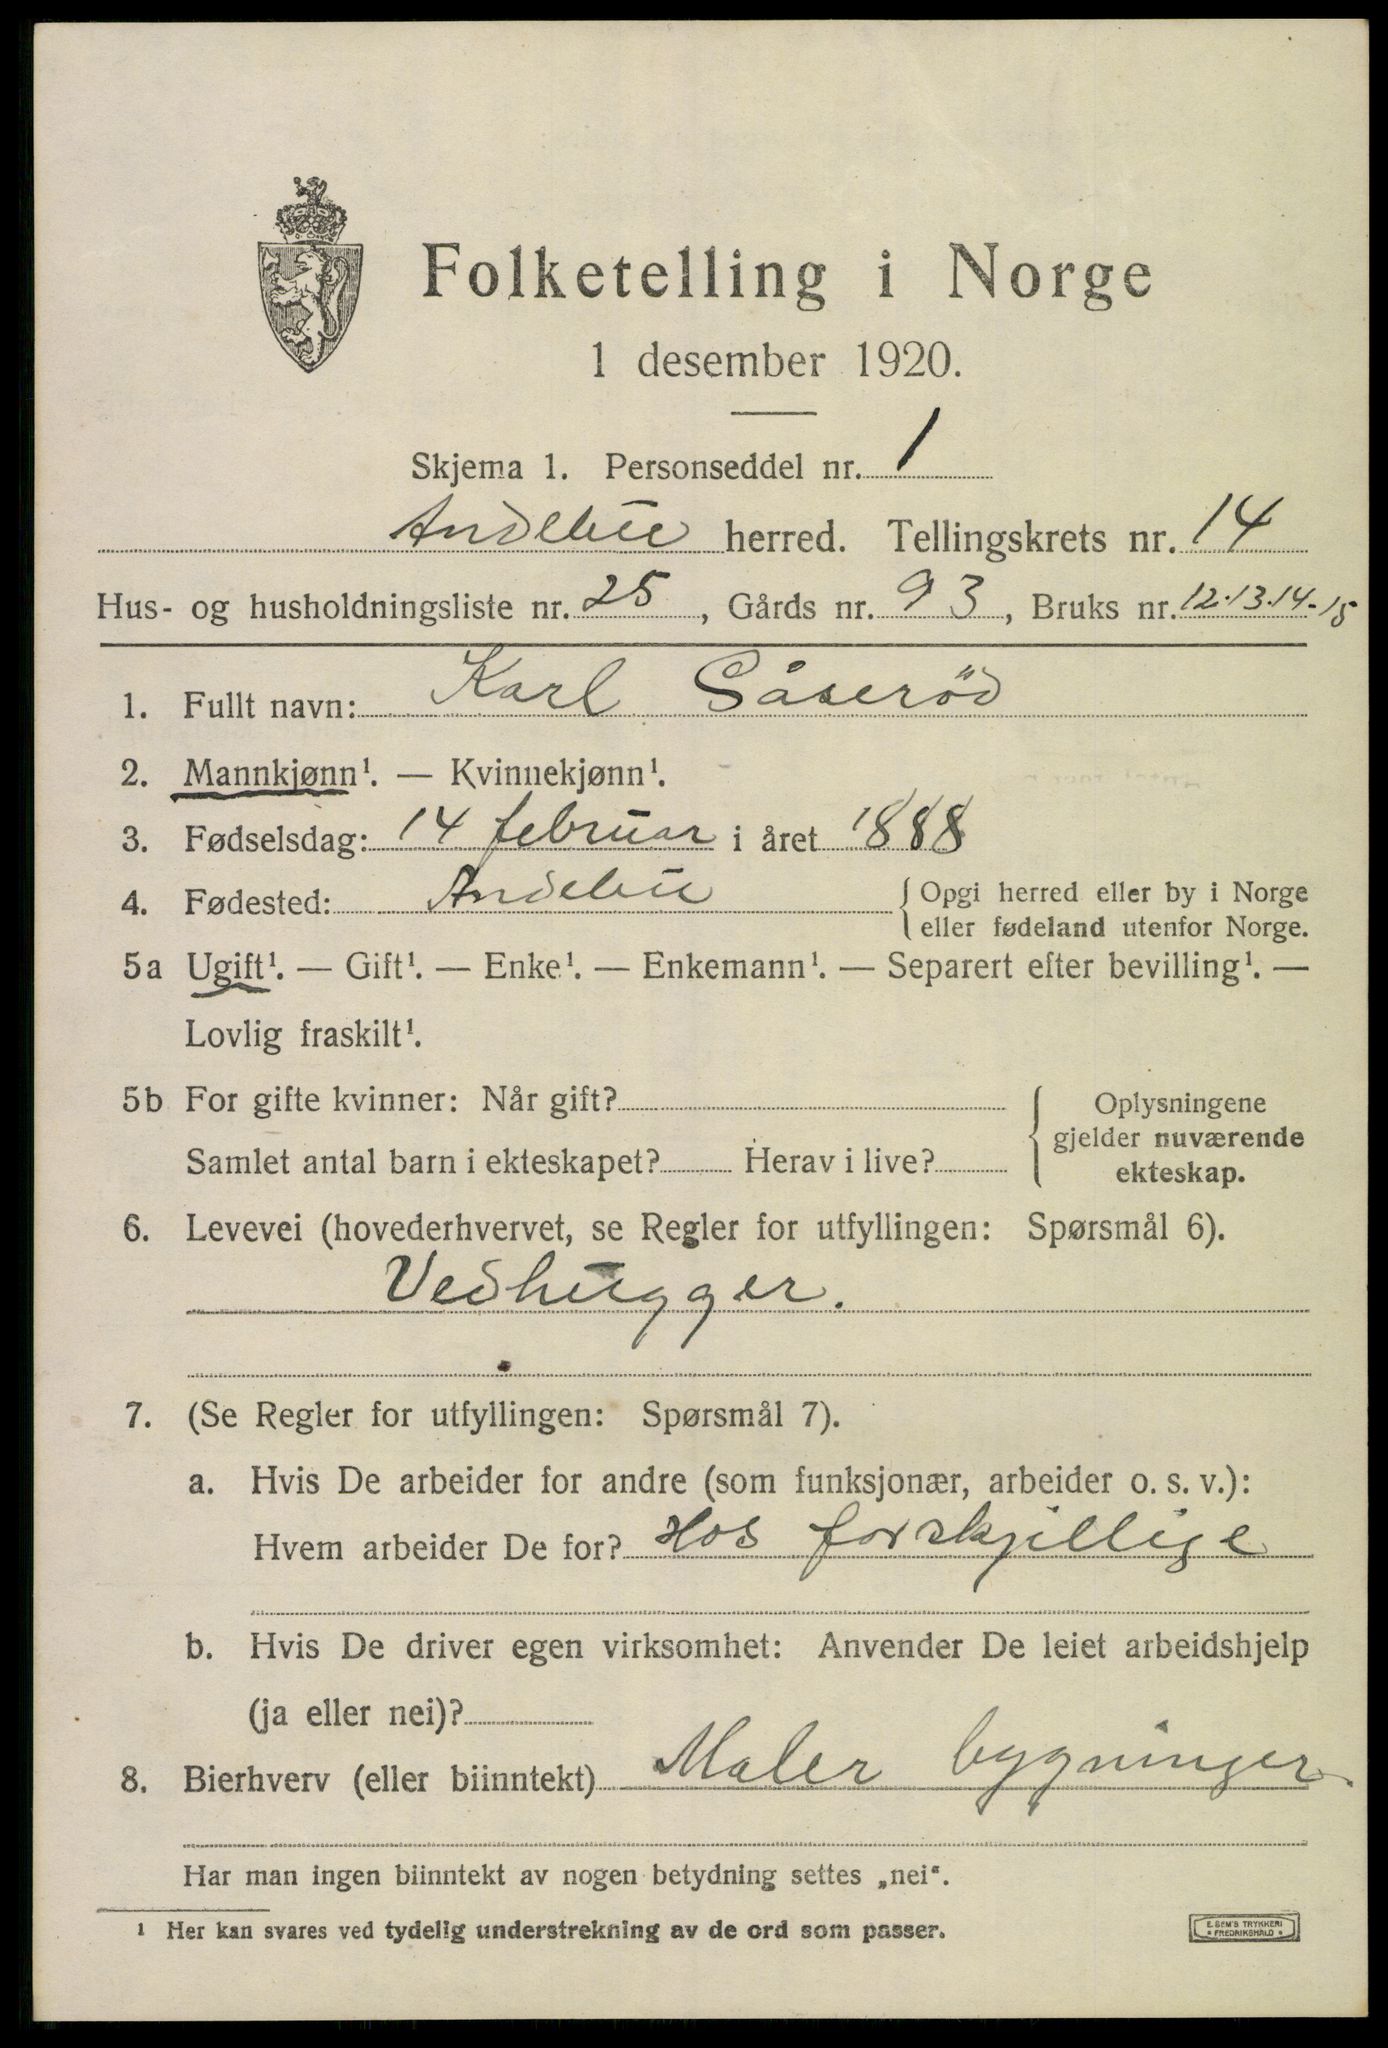 Folketelling i Norge
1 desember 1920.
Skjema 1. Personseddel nr. 1
Andebu herred. Tellingskrets nr. 14
Hus- og husholdningsliste nr. 25, Gårds nr. 93, Bruks nr. 12.13.14-15
1. Fullt navn: Karl Såserød
2. Mannkjønn¹. — Kvinnekjønn¹.
3. Fødselsdag: 14 februar i året 1888
4. Fødested: Andebu { Opgi herred eller by i Norge
eller fødeland utenfor Norge.
5a Ugift¹. — Gift¹. — Enke¹. — Enkemann¹. — Separert efter bevilling¹. —
Lovlig fraskilt¹.
5b For gifte kvinner: Når gift? { Oplysningene
gjelder nuværende
Samlet antal barn i ekteskapet? Herav i live? ekteskap.
6. Levevei (hovederhvervet, se Regler for utfyllingen: Spørsmål 6).
Vedhugger.
7. (Se Regler for utfyllingen: Spørsmål 7).
a. Hvis De arbeider for andre (som funksjonær, arbeider o. s. v.):
Hvem arbeider De for? Hos forskjillige
b. Hvis De driver egen virksomhet: Anvender De leiet arbeidshjelp
(ja eller nei)?
8. Bierhverv (eller biinntekt) Maler bygninger.
Har man ingen biinntekt av nogen betydning settes „nei“.
¹ Her kan svares ved tydelig understrekning av de ord som passer.
E. SEM'S TRYKKERI
* FREDRIKSHALD *